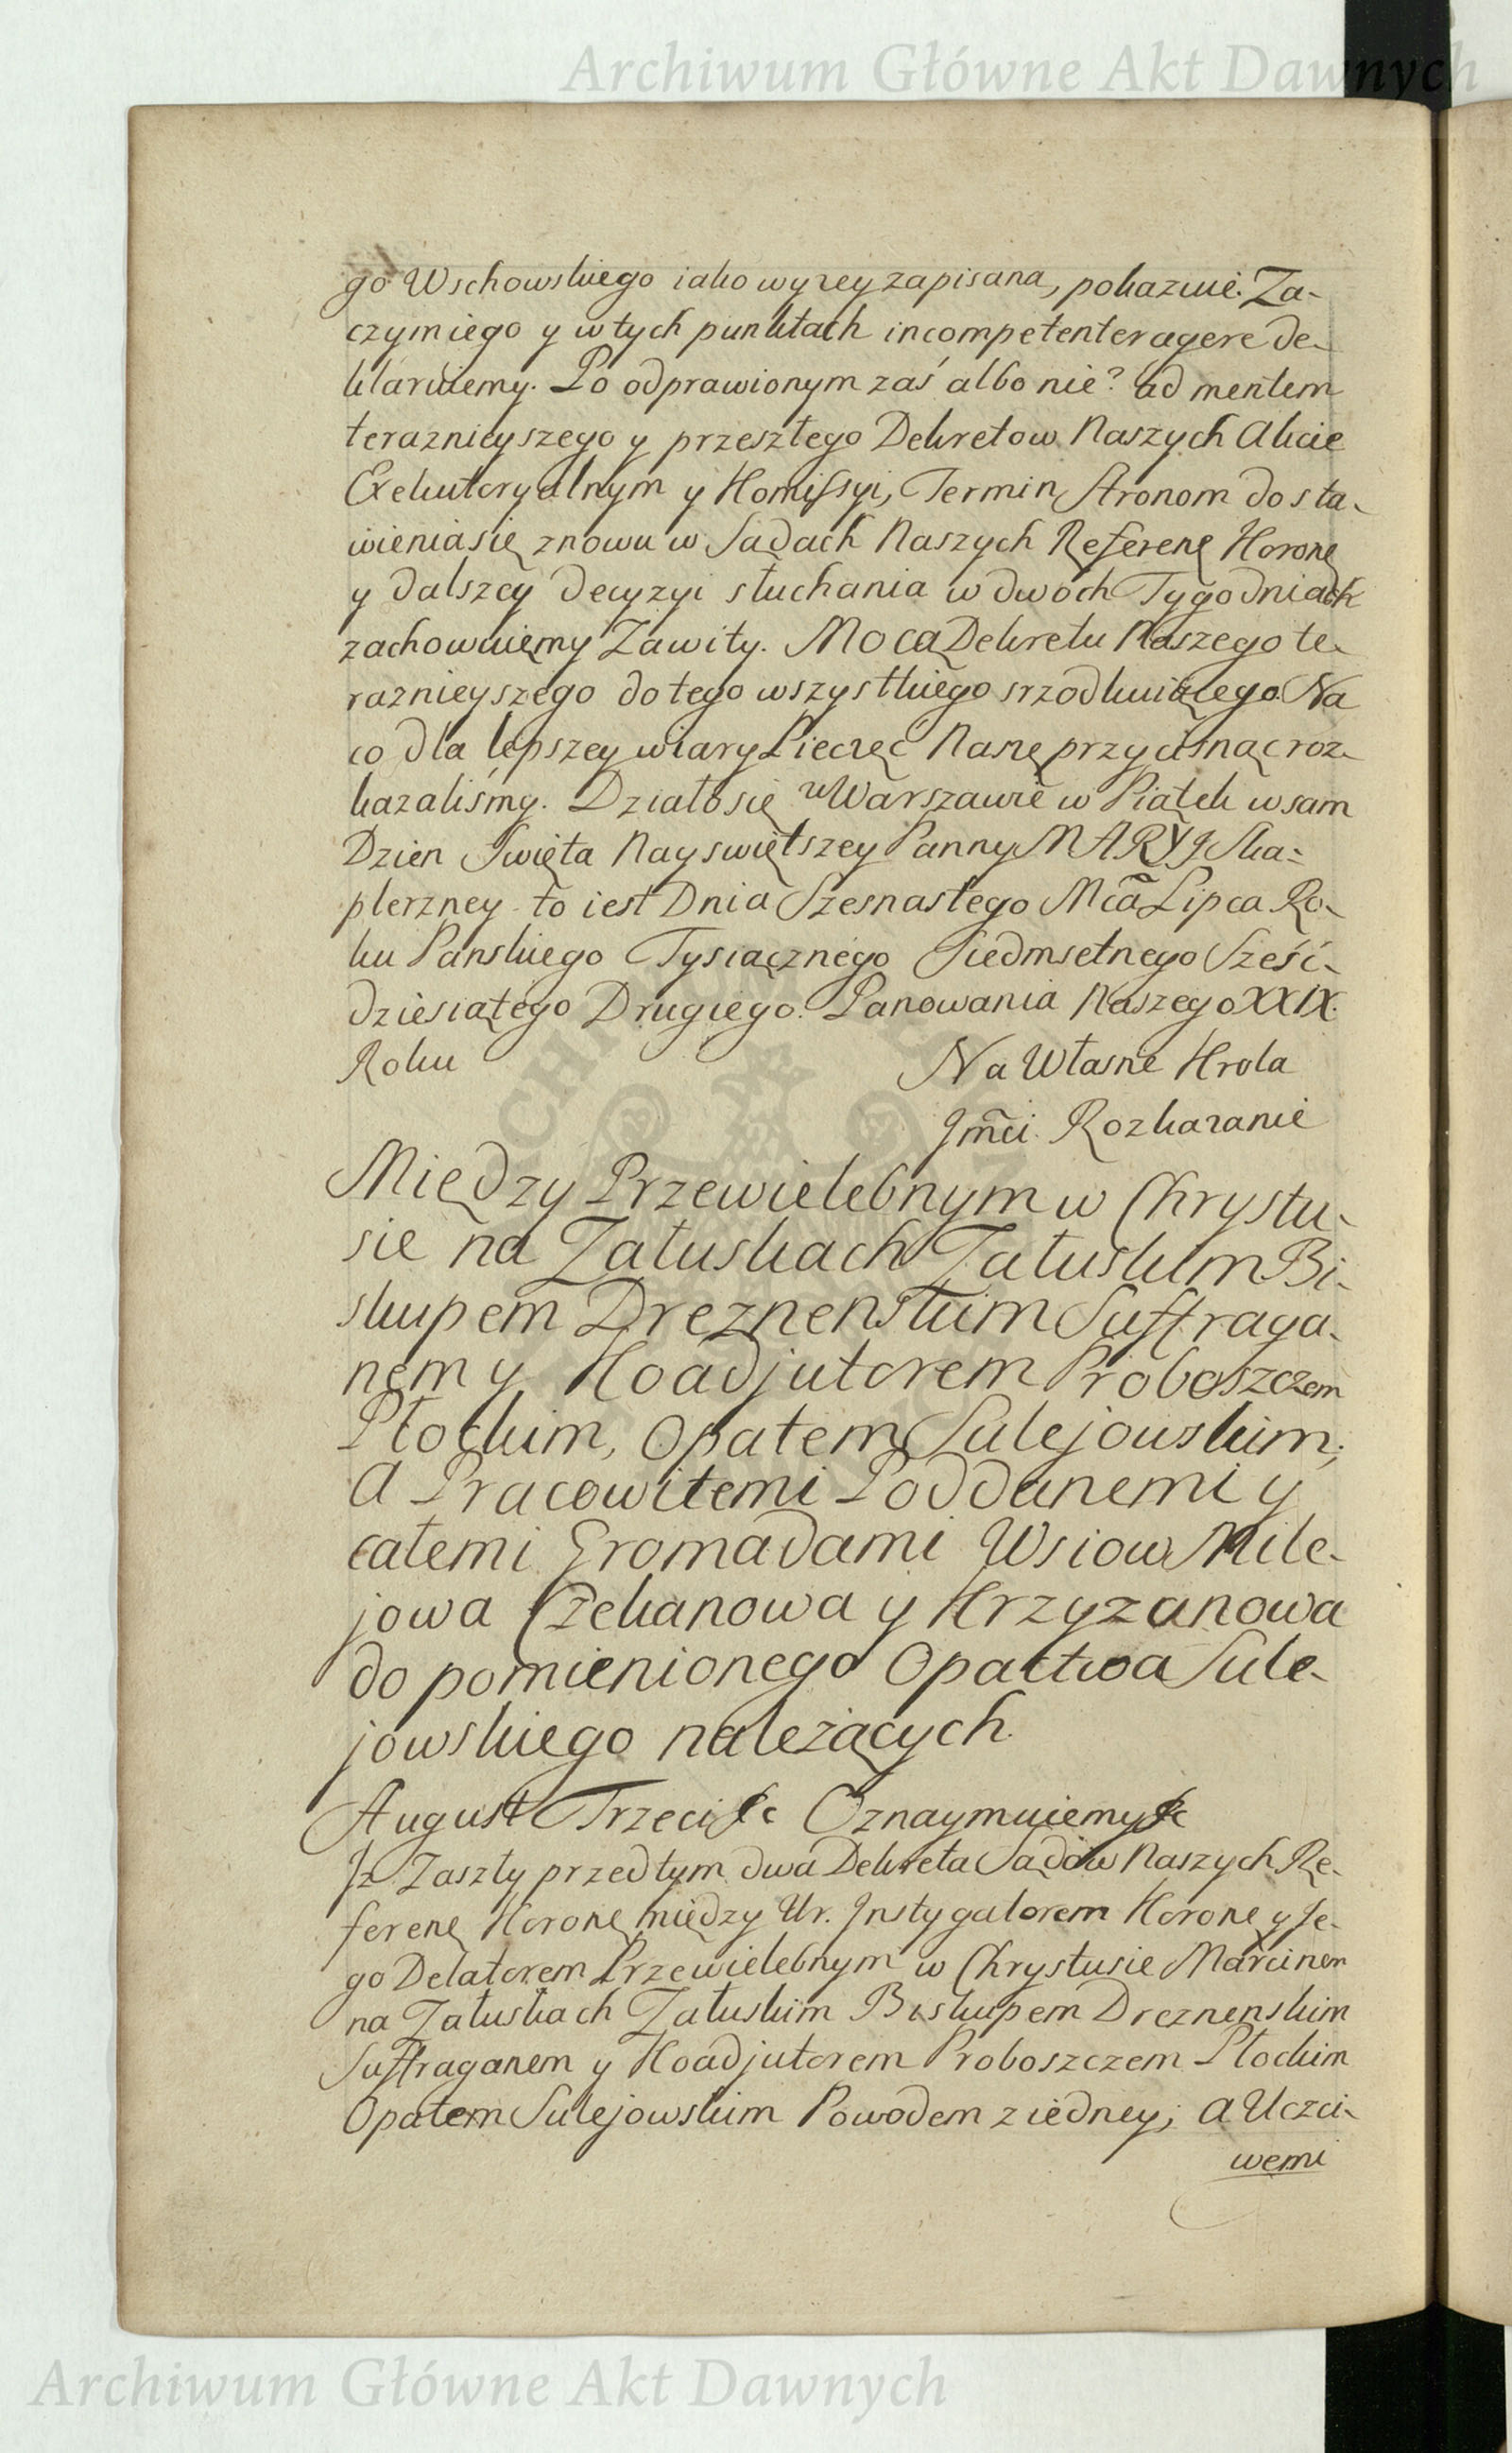 Archiwum Główne Akt Dawnych
go Wschowskiego iako wyzey zapisana, pokazuie. Za-
czym iego y w tych punktach incompetenter agere de-
klaruiemy. Po odprawionym zaś albo nie? ad mentem
teraznieyszego y przeszłego Dekretow Naszych Akcie
Exekutoryalnym y Komissyi, Termin Stronom do sta-
wienia się znowu w Sądach Naszych Referenę Koronę
y dalszey decyzyi słuchania w dwoch Tygodniach
zachowuiemy Zawity. Mocą Dekretu Naszego te-
raznieyszego do tego wszystkiego srzodkuiącego. Na
co dla lepszey wiary Pieczęć Naszę przycisnąć roz-
kazaliśmy. Działo się w Warszawie w Piątek w sam
Dzien Swięta Nayswiętszey Panny MARYI Ska-
plerzney to iest Dnia Szesnastego Mca Lipca Ro-
ku Panskiego Tysiącznego Siedmsetnego Sześć-
dziesiątego Drugiego. Panowania Naszego XXIX.
Roku
Na Własne Krola
Jmci Rozkazanie
Między Przewielebnym w Chrystu-
sie na Załuskach Załuskim Bi-
skupem Dreznenskim Suffraga-
nem y Koadjutorem Proboszczem
Płockim, Opatem Sulejowskim;
A Pracowitemi Poddanemi y
całemi Gromadami Wsiow Mile-
jowa Czekanowa y Krzyzanowa
do pomienionego Opactwa Sule-
jowskiego należących.
August Trzeci &c Oznaymuiemy &c
Jż Zaszły przedtym dwa Dekreta Sądów Naszych Re-
ferenę Koronę między Ur. Instygatorem Koronę y Je-
go Delatorem Przewielebnym w Chrystusie Marcinem
na Załuskach Załuskim Biskupem Dreznenskim
Suffraganem y Koadjutorem Proboszczem Płockim
Opatem Sulejowskim Powodem z iedney; A Uczci-
wemi
Archiwum Główne Akt Dawnych